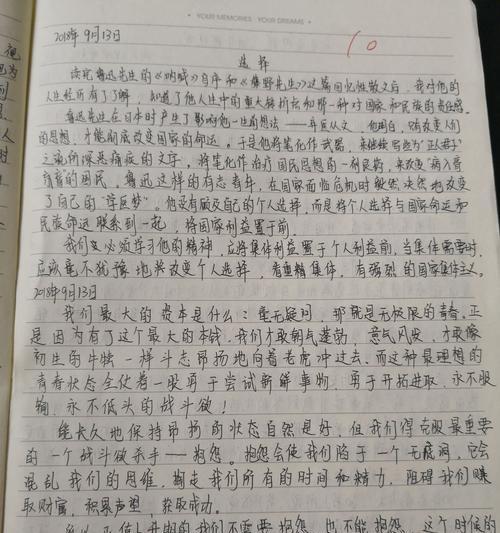 YOUR MEMORIES YOUR DREAMS
2018年9月13日
10
选择
读完鲁迅先生的《呐喊》自序和《藤野先生》这篇回忆性散文后，我对他的
人生经历有了了解，知道了他人生中的重大转折点和那一种对国家和民族的责任感。
鲁迅先生在日本时产生了影响他一生的想法——弃医从文，他明白，只有改变人们
的思想，才能彻底改变国家的命运。于是他将笔化作武器，来继续写些为"正人君子"
之流所深恶痛疾的文字，将笔化作治疗国民思想的一剂良药，来改变"病入膏
肓着的国民，鲁迅这样的有志青年，在国家面临危机时毅然决然地改变
了自己的"学医梦"。他没有顾及自己的个人选择，而是将个人选择与国家命运和
民族命运联系到一起，将国家利益置于前。
我们必须学习他的精神，应将集体利益置于个人利益前，当集体需要时，
应该毫不犹豫地改变个人选择，看重精集体，有强烈的国家集体主义。
2018年9月13日
我们最大的资本是什么：毫无疑问，那就是无极限的青春。正
是因为有了这个最大的本钱，我们才敢朝气蓬勃，意气风发，才敢像
初生的牛犊一样斗志昂扬地向着老虎冲过去。而这种最理想的
青春状态全仗着一股勇于尝试新鲜事物，勇于开拓进取，永不服
输、永不低头的战斗欲！
能长久地保持昂扬的状态自然是好，但我们得克服最重要
的一个战斗欲杀手——抱怨。抱怨会使我们陷于一个无底洞，它会
混乱我们的思维，掏走我们所有的时间和精力，阻碍我们赚
取财富，积累声望，获取成功。
我们不需要抱怨，也不能抱怨，这个时候的